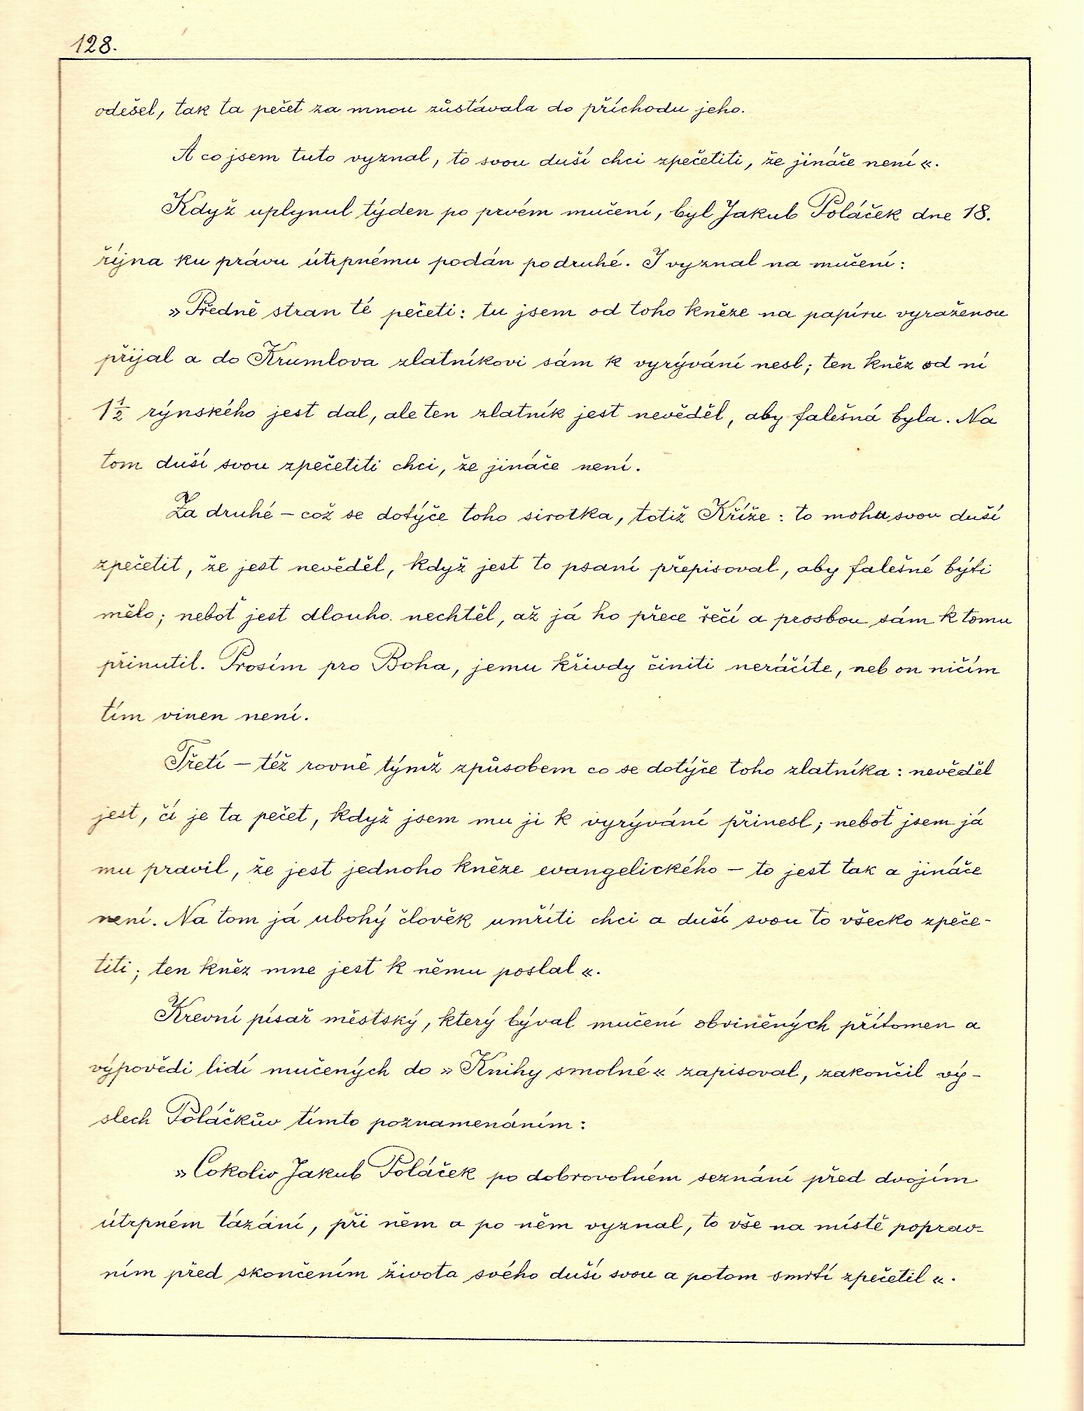 128.
odešel, tak ta pečet za mnou zůstávala do příchodu jeho.
A co jsem tuto vyznal, to svou duší chci zpečetiti, že jináče není«.
Když uplynul týden po prvém mučení, byl Jakub Poláček dne 18.
října ku právu útrpnému podán podruhé. I vyznal na mučení:
»Předně stran té pečeti: tu jsem od toho kněze na papíru vyraženou
přijal a do Krumlova zlatníkovi sám k vyrývání nesl; ten kněz od ní
1½ rýnského jest dal, ale ten zlatník jest nevěděl, aby falešná byla. Na
tom duší svou zpečetiti chci, že jináče není.
Za druhé – což se dotýče toho sirotka, totiž Kříže: to mohu svou duší
zpečetit, že jest nevěděl, když jest to psaní přepisoval, aby falešné býti
mělo; neboť jest dlouho nechtěl, až já ho přece řečí a prosbou sám k tomu
přinutil. Prosím pro Boha, jemu křivdy činiti neráčíte, neb on ničím
tím vinen není.
Třetí – též rovně týmž způsobem co se dotýče toho zlatníka: nevěděl
jest, čí je ta pečet, když jsem mu ji k vyrývání přinesl; neboť jsem já
mu pravil, že jest jednoho kněze evangelického – to jest tak a jináče
není. Na tom já ubohý člověk umříti chci a duší svou to všecko zpeče-
titi; ten kněz mne jest k němu poslal«.
Krevní písař městský, který býval mučení obviněných přítomen a
výpovědi lidí mučených do »Knihy smolné« zapisoval, zakončil vý-
slech Poláčkův tímto poznamenáním:
»Cokoliv Jakub Poláček po dobrovolném seznání před dvojím
útrpném tázání, při něm a po něm vyznal, to vše na místě poprav-
ním před skončením života svého duší svou a potom smrtí zpečetil«.